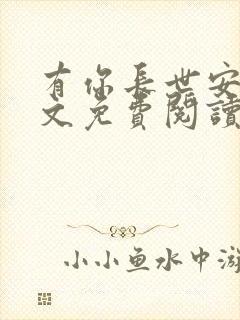 有你长世安
文免費閱讀
小小鱼水中游